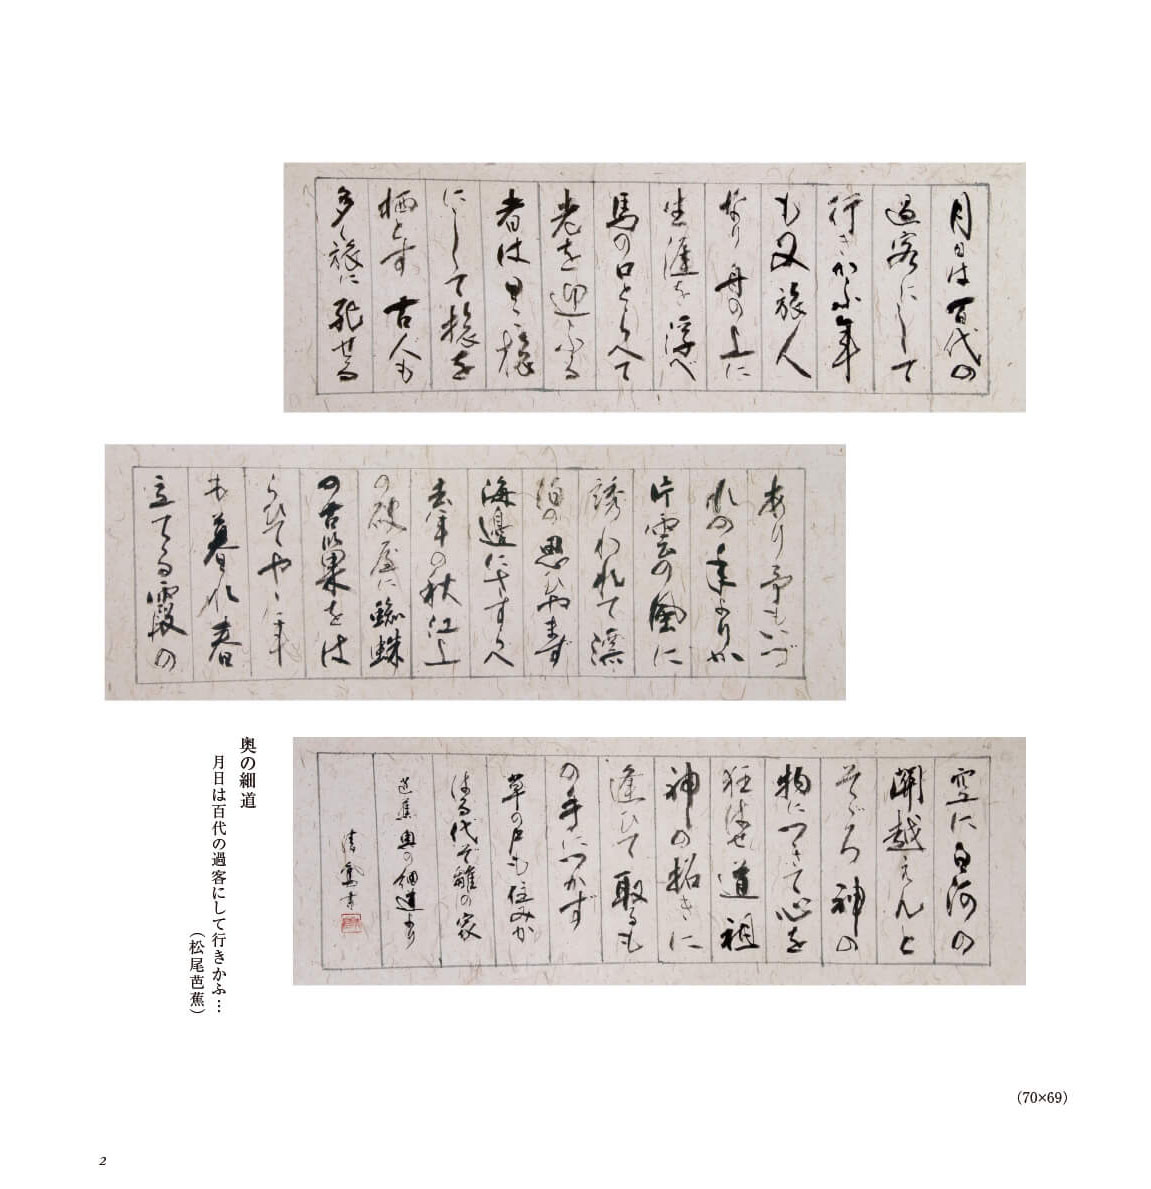 月日は百代の
過客にして
行きかふ年
も又旅人
なり舟の上に
生涯を浮べ
馬の口とらへて
老を迎ふる
者は日々旅
にして旅を
栖とす古人も
多く旅に死せる
あり予もいづ
れの年よりか
片雲の風に
誘われて漂
泊の思ひやまず
海邊にさすらへ
去年の秋江上
の破屋に蜘蛛
の古巣をは
らひてやゝ年
も暮れ春
立てる霞の
空に白河の
関越えんと
そゞろ神の
物につきて心を
狂はせ道祖
神の招きに
逢ひて取るも
の手につかず
草の戸も住みか
はる代ぞ雛の家
芭蕉奥の細道より
奥の細道
月日は百代の過客にして行きかふ…
（松尾芭蕉）
（70×69）
2